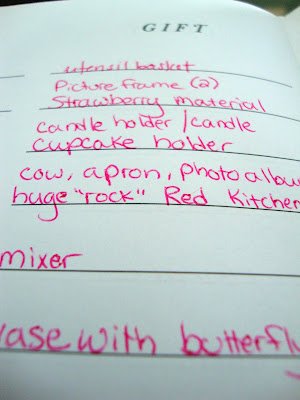 GIFT
utensil basket
Picture frame (2)
Strawberry material
candle holder / candle
cupcake holder
cow, apron, photo album
huge "rock" Red Kitchen
mixer
vase with butterfly